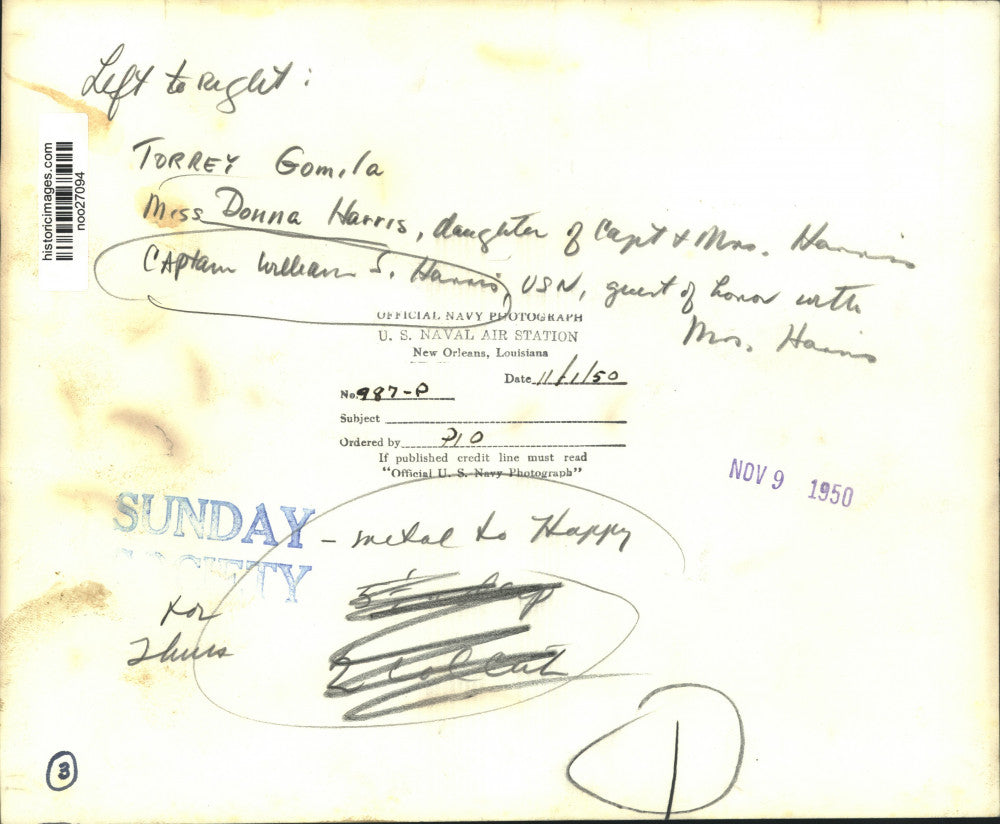 Left to Right :
historicimages.com
noo27094
TORREY Gomila
Miss Donna Harris, daughter of Capt & Mrs. Harris
Captain William S. Harris, USN, guest of honor with
Mrs. Harris
OFFICIAL NAVY PHOTOGRAPH
U. S. NAVAL AIR STATION
New Orleans, Louisiana
Date 11/1/50
No. 987-P
Subject
Ordered by PIO
If published credit line must read
"Official U. S. Navy Photograph"
NOV 9 1950
SUNDAY
SOCIETY
- metal to Happy
for
Thurs
2 col cut
3
1